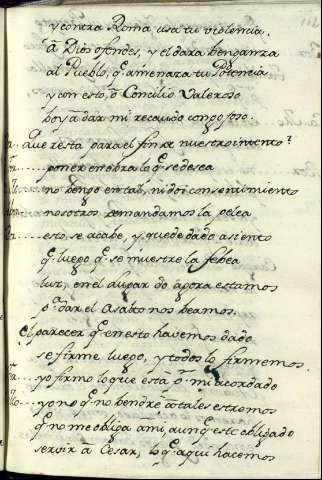 y contra Roma usa tu violencia.
a Dios ofendes, y el dara benganza
al Pueblo, q. amenaza tu Potencia
y con esto, o Concilio Valeroso
boy a dar mi recaudo congojoso.
Que resta para el fin de nuestro intento?
poner en obra lo q. se desea
no bengo en tal, ni doi consentimiento
nosotros demandamos la pelea
esto se acabe, y quede dado asiento
q. luego q. se muestre la febea
luz, en el lugar do agora estamos
p. dar el asalto nos beamos.
el parecer q. en esto havemos dado
se firme luego, y todos lo firmemos.
yo firmo lo que está p. mi acordado
yo no q. no bendre a tales estremos
q. no me obliga a mi, aunq. este obligado
servir a Cesar, lo q. aqui hacemos